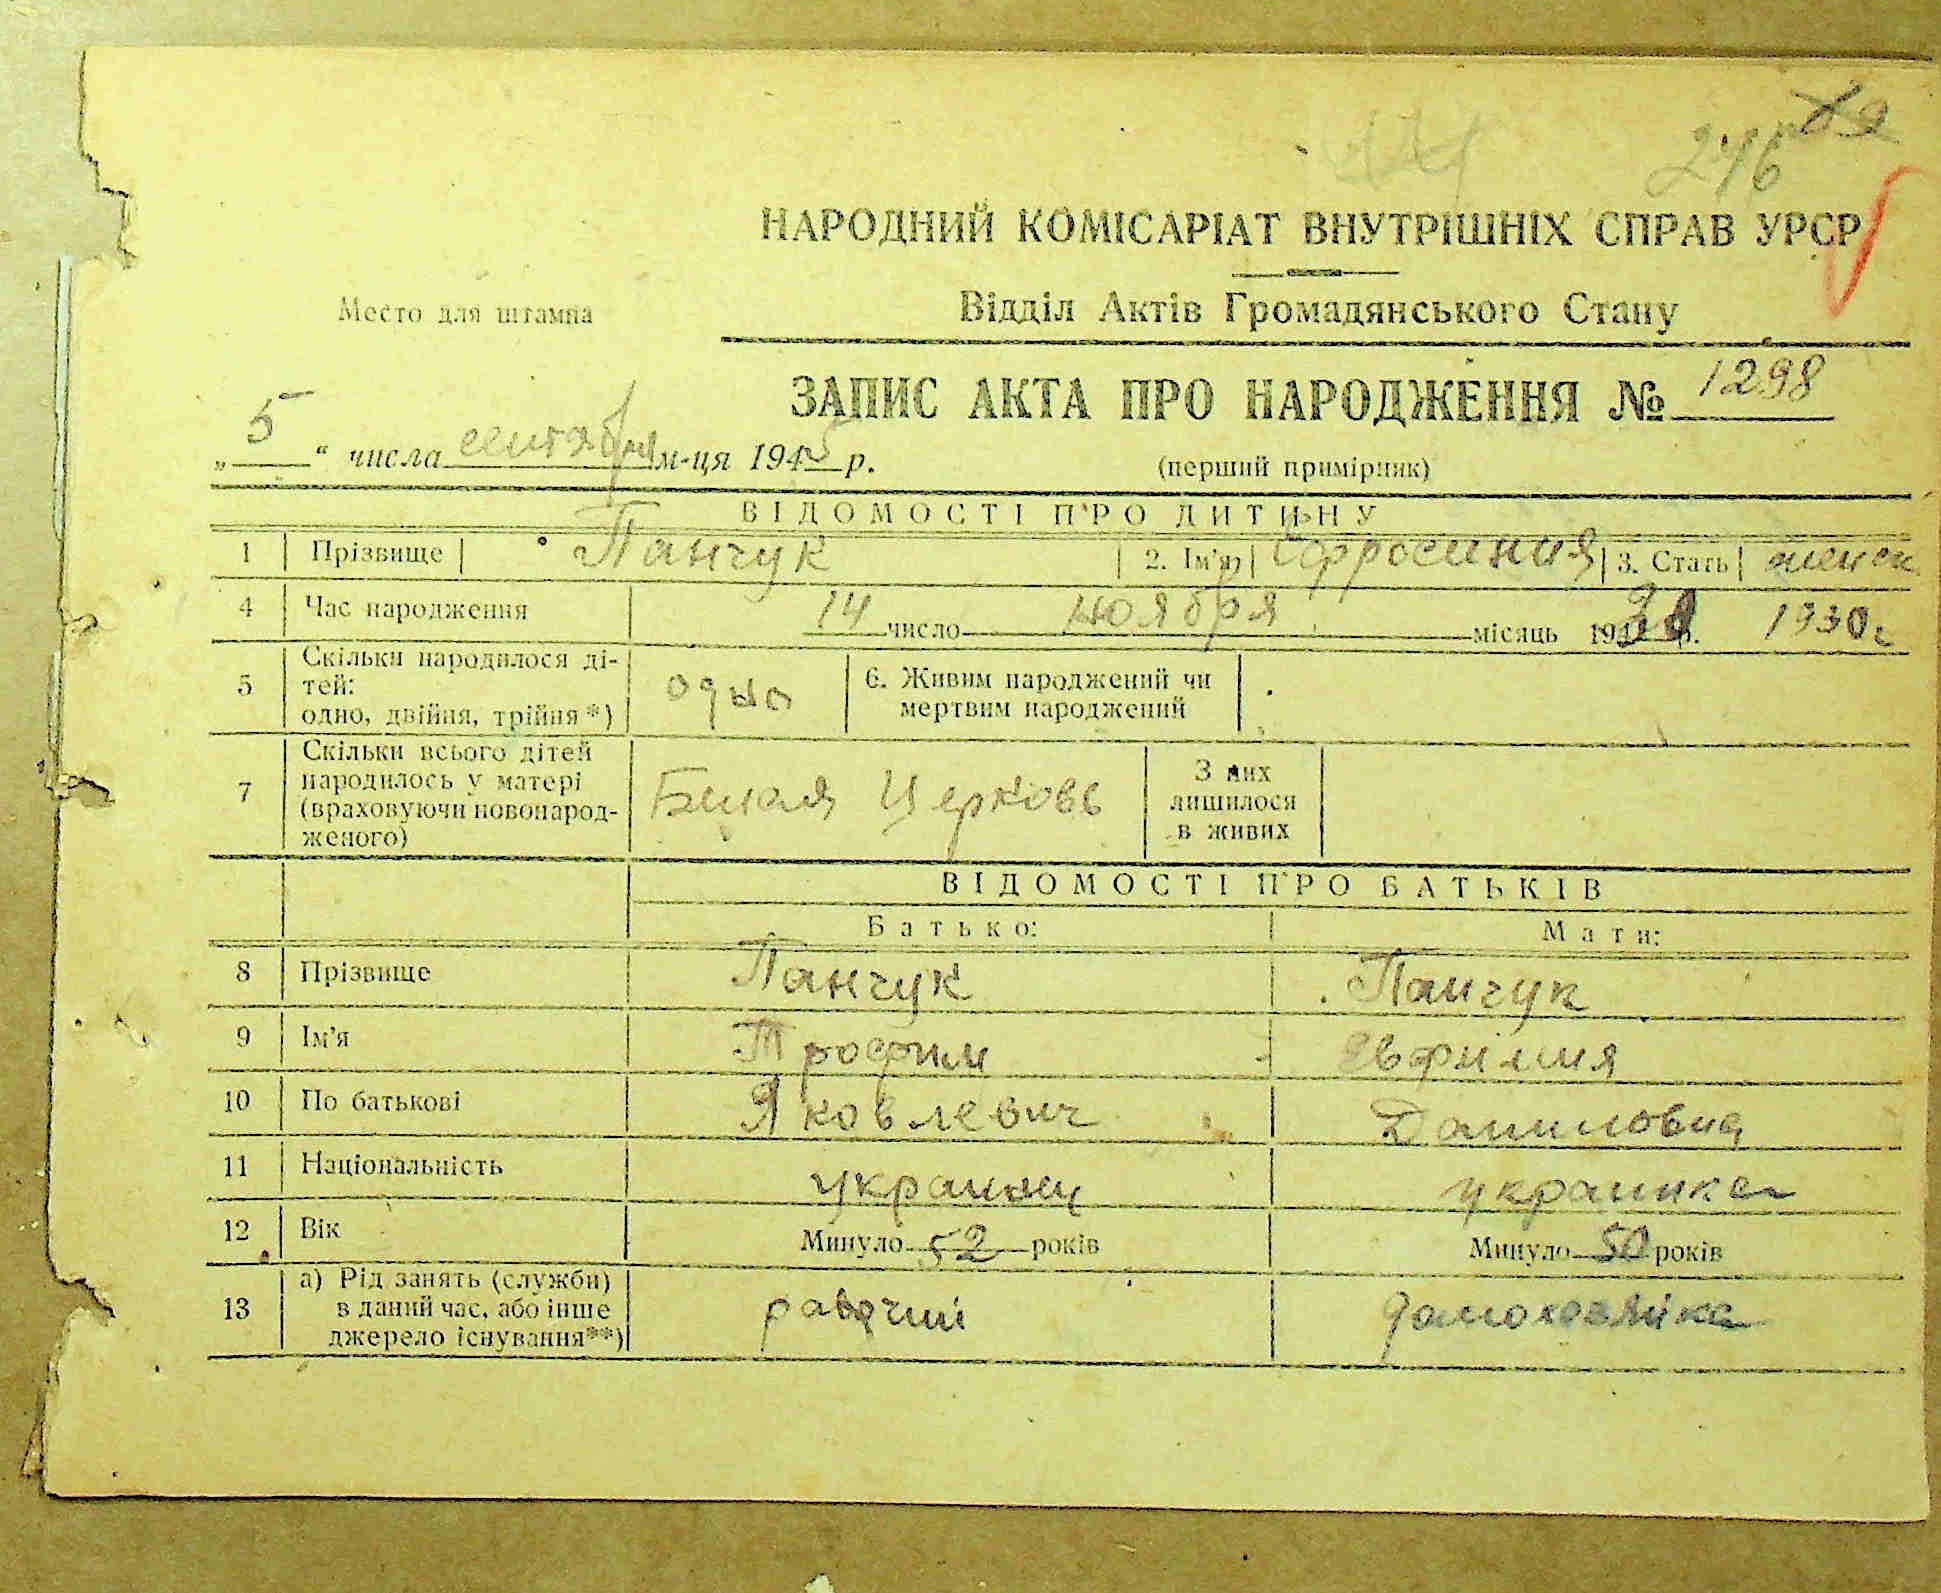 246
НАРОДНИЙ КОМІСАРІАТ ВНУТРІШНІХ СПРАВ УРСР
Место для штампа
Відділ Актів Громадянського Стану
ЗАПИС АКТА ПРО НАРОДЖЕННЯ № 1298
„ 5 “ числа сентября м-ця 1945 р.
(перший примірник)
ВІДОМОСТІ ПРО ДИТИНУ
1 Прізвище Панчук 2. Ім'я Ефросиния 3. Стать женск
4 Час народження 14 число ноября місяць 1930 р. 1930 г
5 Скільки народилося ді-
тей:
одно, двійня, трійня*)
одно
6. Живим народжений чи
мертвим народжений
7 Скільки всього дітей
народилось у матері
(враховуючи новонарод-
женого)
Белая Церковь
З них
лишилося
в живих
ВІДОМОСТІ ПРО БАТЬКІВ
Батько: Мати:
8 Прізвище Панчук Панчук
9 Ім'я Трофим Евфимия
10 По батькові Яковлевич Даниловна
11 Національність украинец украинка
12 Вік Минуло 52 років Минуло 50 років
13 а) Рід занять (служби)
в даний час, або інше
джерело існування**)
рабочий домохозяйка